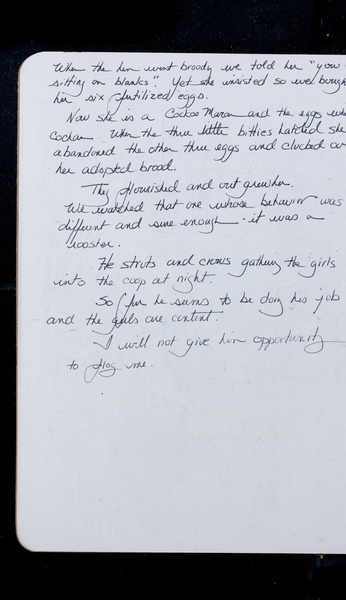 When the hen went broody we told her "you
sitting on blanks". Yet she insisted so we bough
her six fertilized eggs.
Now she is a Cockoo Maran and the eggs we
Cochan. When the three little bitties hatched she
abandoned the other three eggs and clucked ov
her adopted brood.
They flourished and out grew her.
We watched that one whose behavior was
different and sure enough - it was a
rooster.
He struts and crows gathering the girls
into the coop at night.
So far he seems to be doing his job
and the girls are content.
I will not give him opportunity
to flog me.